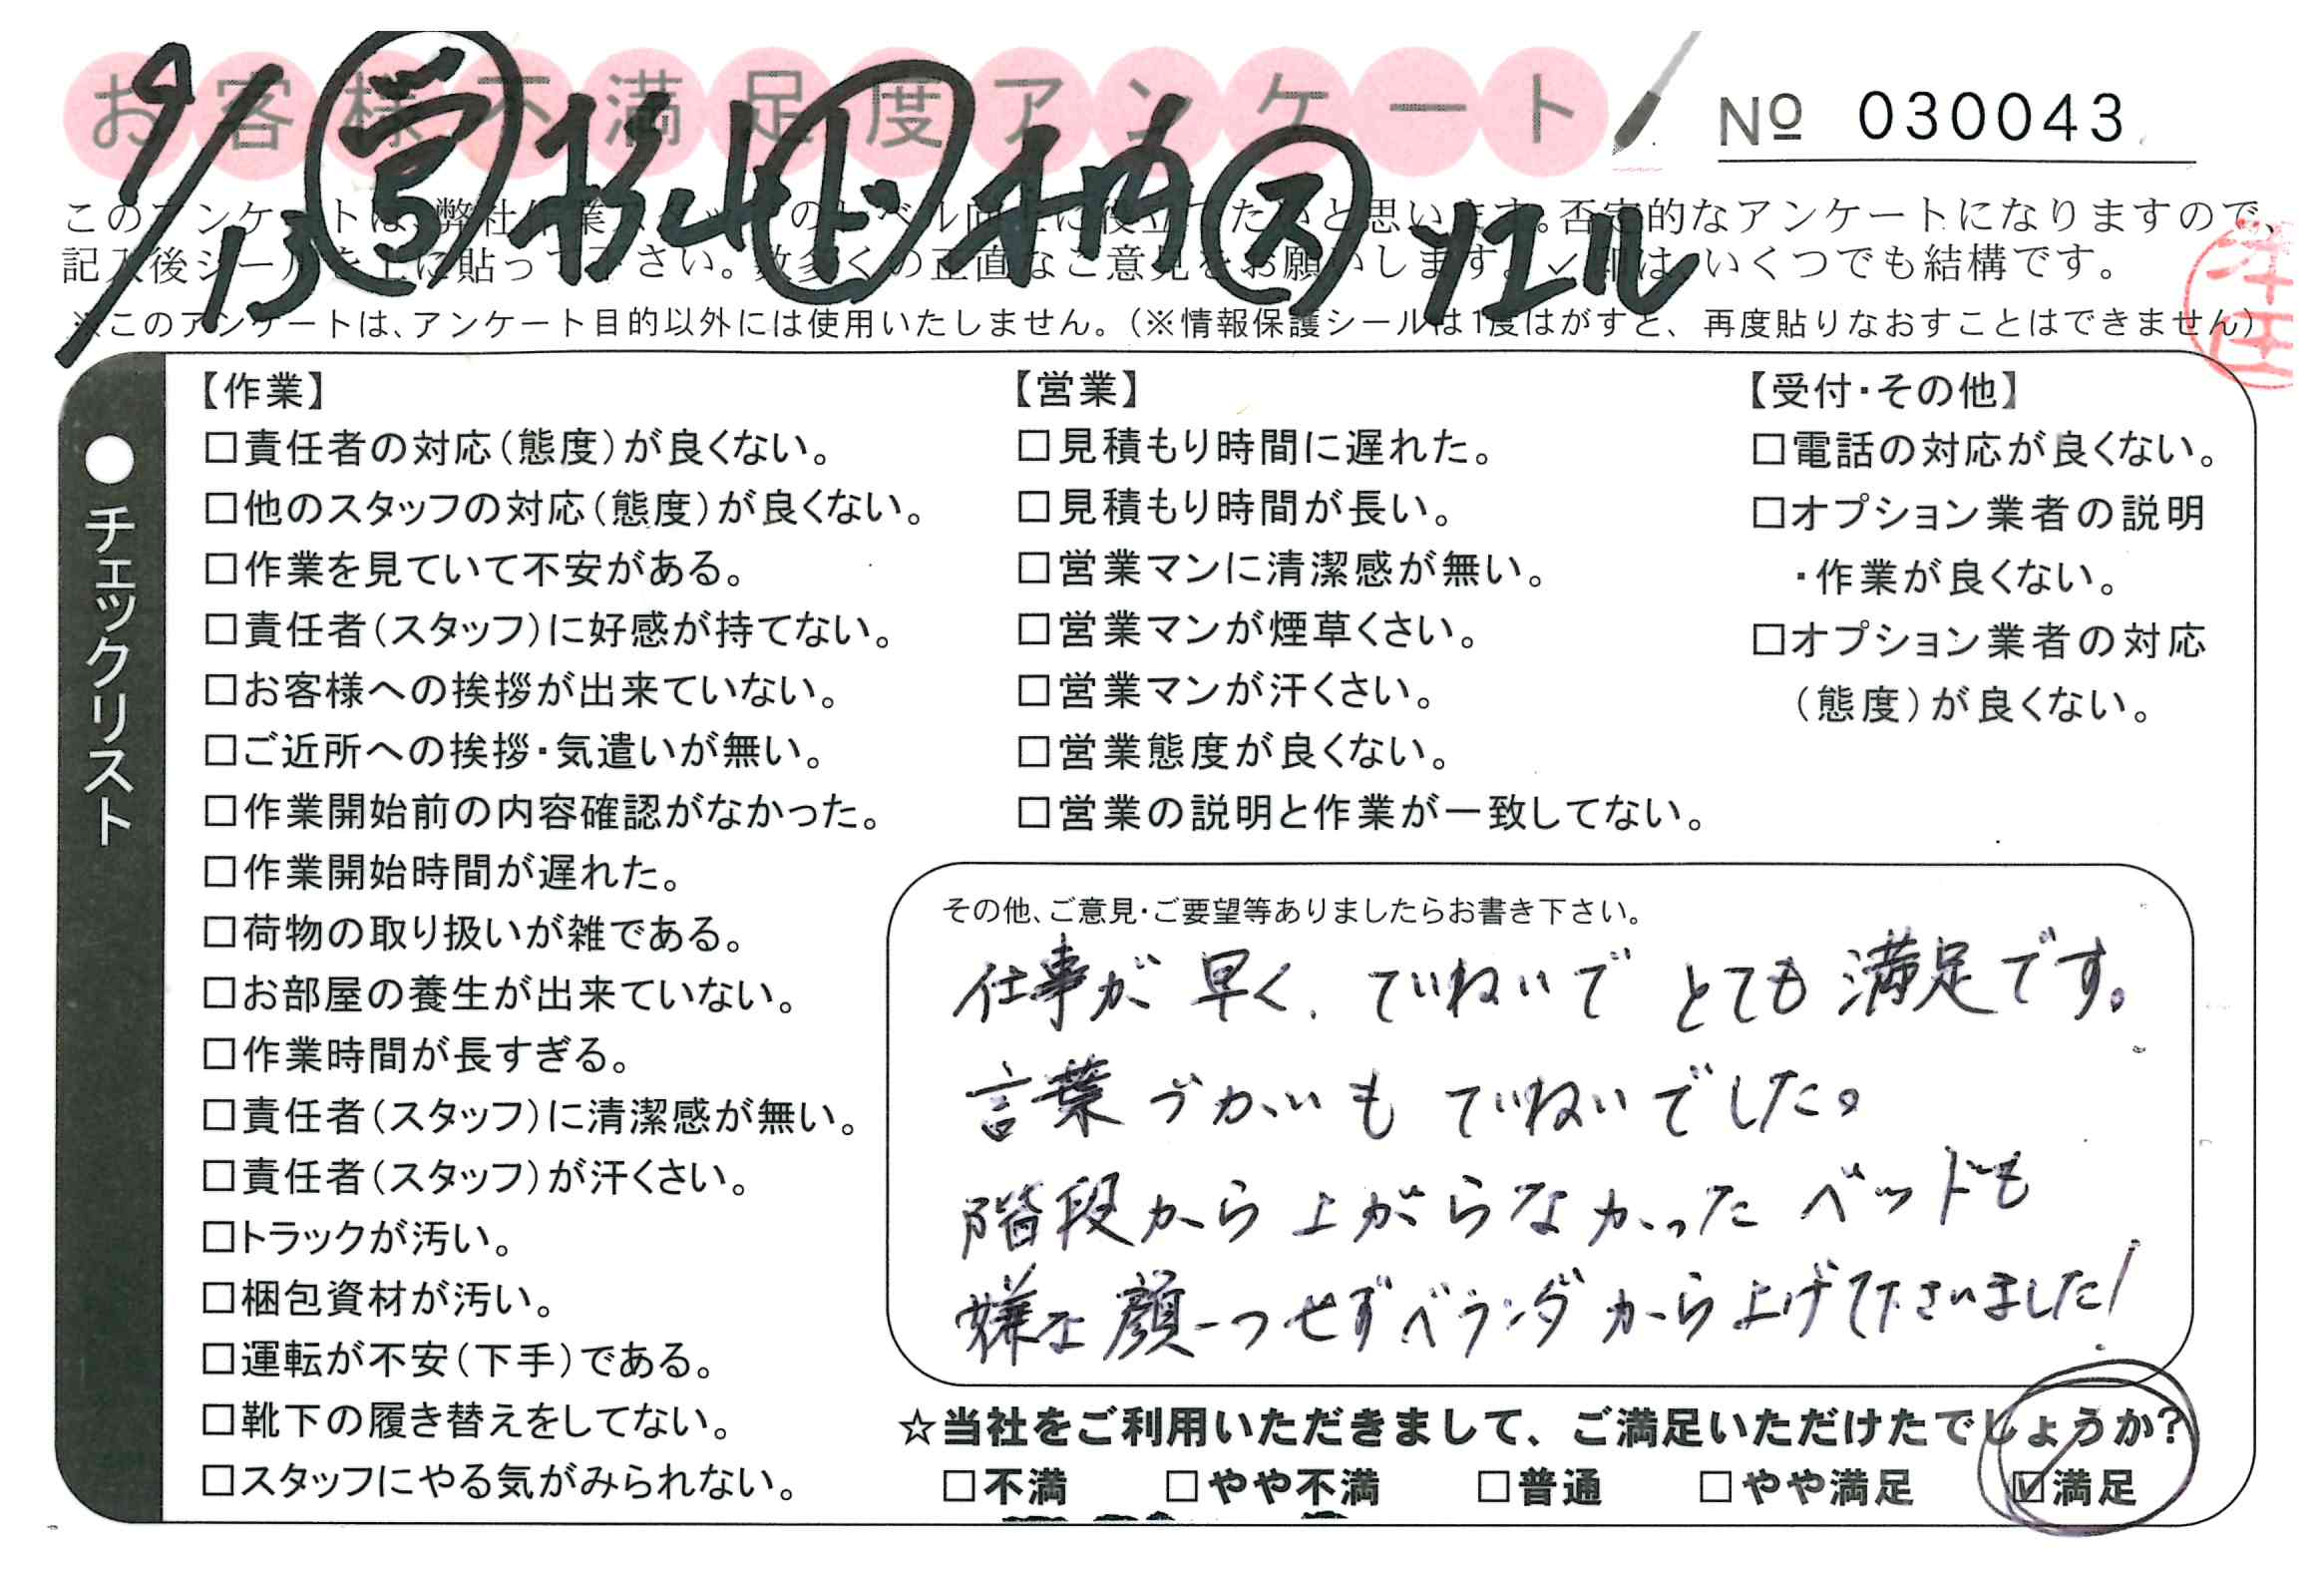 お客様不満足度アンケート
№ 030043
9/13 営 杉山 ド 柄 ス ソエル
このアンケートは、弊社作業スタッフのレベル向上に役立てたいと思います。否定的なアンケートになりますので、
記入後シールを上に貼って下さい。数多くの正直なご意見をお願いします。✓印は、いくつでも結構です。
※このアンケートは、アンケート目的以外には使用いたしません。(※情報保護シールは1度はがすと、再度貼りなおすことはできません)
●チェックリスト
【作業】
□責任者の対応(態度)が良くない。
□他のスタッフの対応(態度)が良くない。
□作業を見ていて不安がある。
□責任者(スタッフ)に好感が持てない。
□お客様への挨拶が出来ていない。
□ご近所への挨拶・気遣いが無い。
□作業開始前の内容確認がなかった。
□作業開始時間が遅れた。
□荷物の取り扱いが雑である。
□お部屋の養生が出来ていない。
□作業時間が長すぎる。
□責任者(スタッフ)に清潔感が無い。
□責任者(スタッフ)が汗くさい。
□トラックが汚い。
□梱包資材が汚い。
□運転が不安(下手)である。
□靴下の履き替えをしてない。
□スタッフにやる気がみられない。
【営業】
□見積もり時間に遅れた。
□見積もり時間が長い。
□営業マンに清潔感が無い。
□営業マンが煙草くさい。
□営業マンが汗くさい。
□営業態度が良くない。
□営業の説明と作業が一致してない。
【受付・その他】
□電話の対応が良くない。
□オプション業者の説明
・作業が良くない。
□オプション業者の対応
(態度)が良くない。
その他、ご意見・ご要望等ありましたらお書き下さい。
仕事が早く、ていねいでとても満足です。
言葉づかいもていねいでした。
階段から上がらなかったベッドも
嫌な顔一つせずベランダから上げて下さいました!
☆当社をご利用いただきまして、ご満足いただけたでしょうか?
□不満 □やや不満 □普通 □やや満足 ☑満足